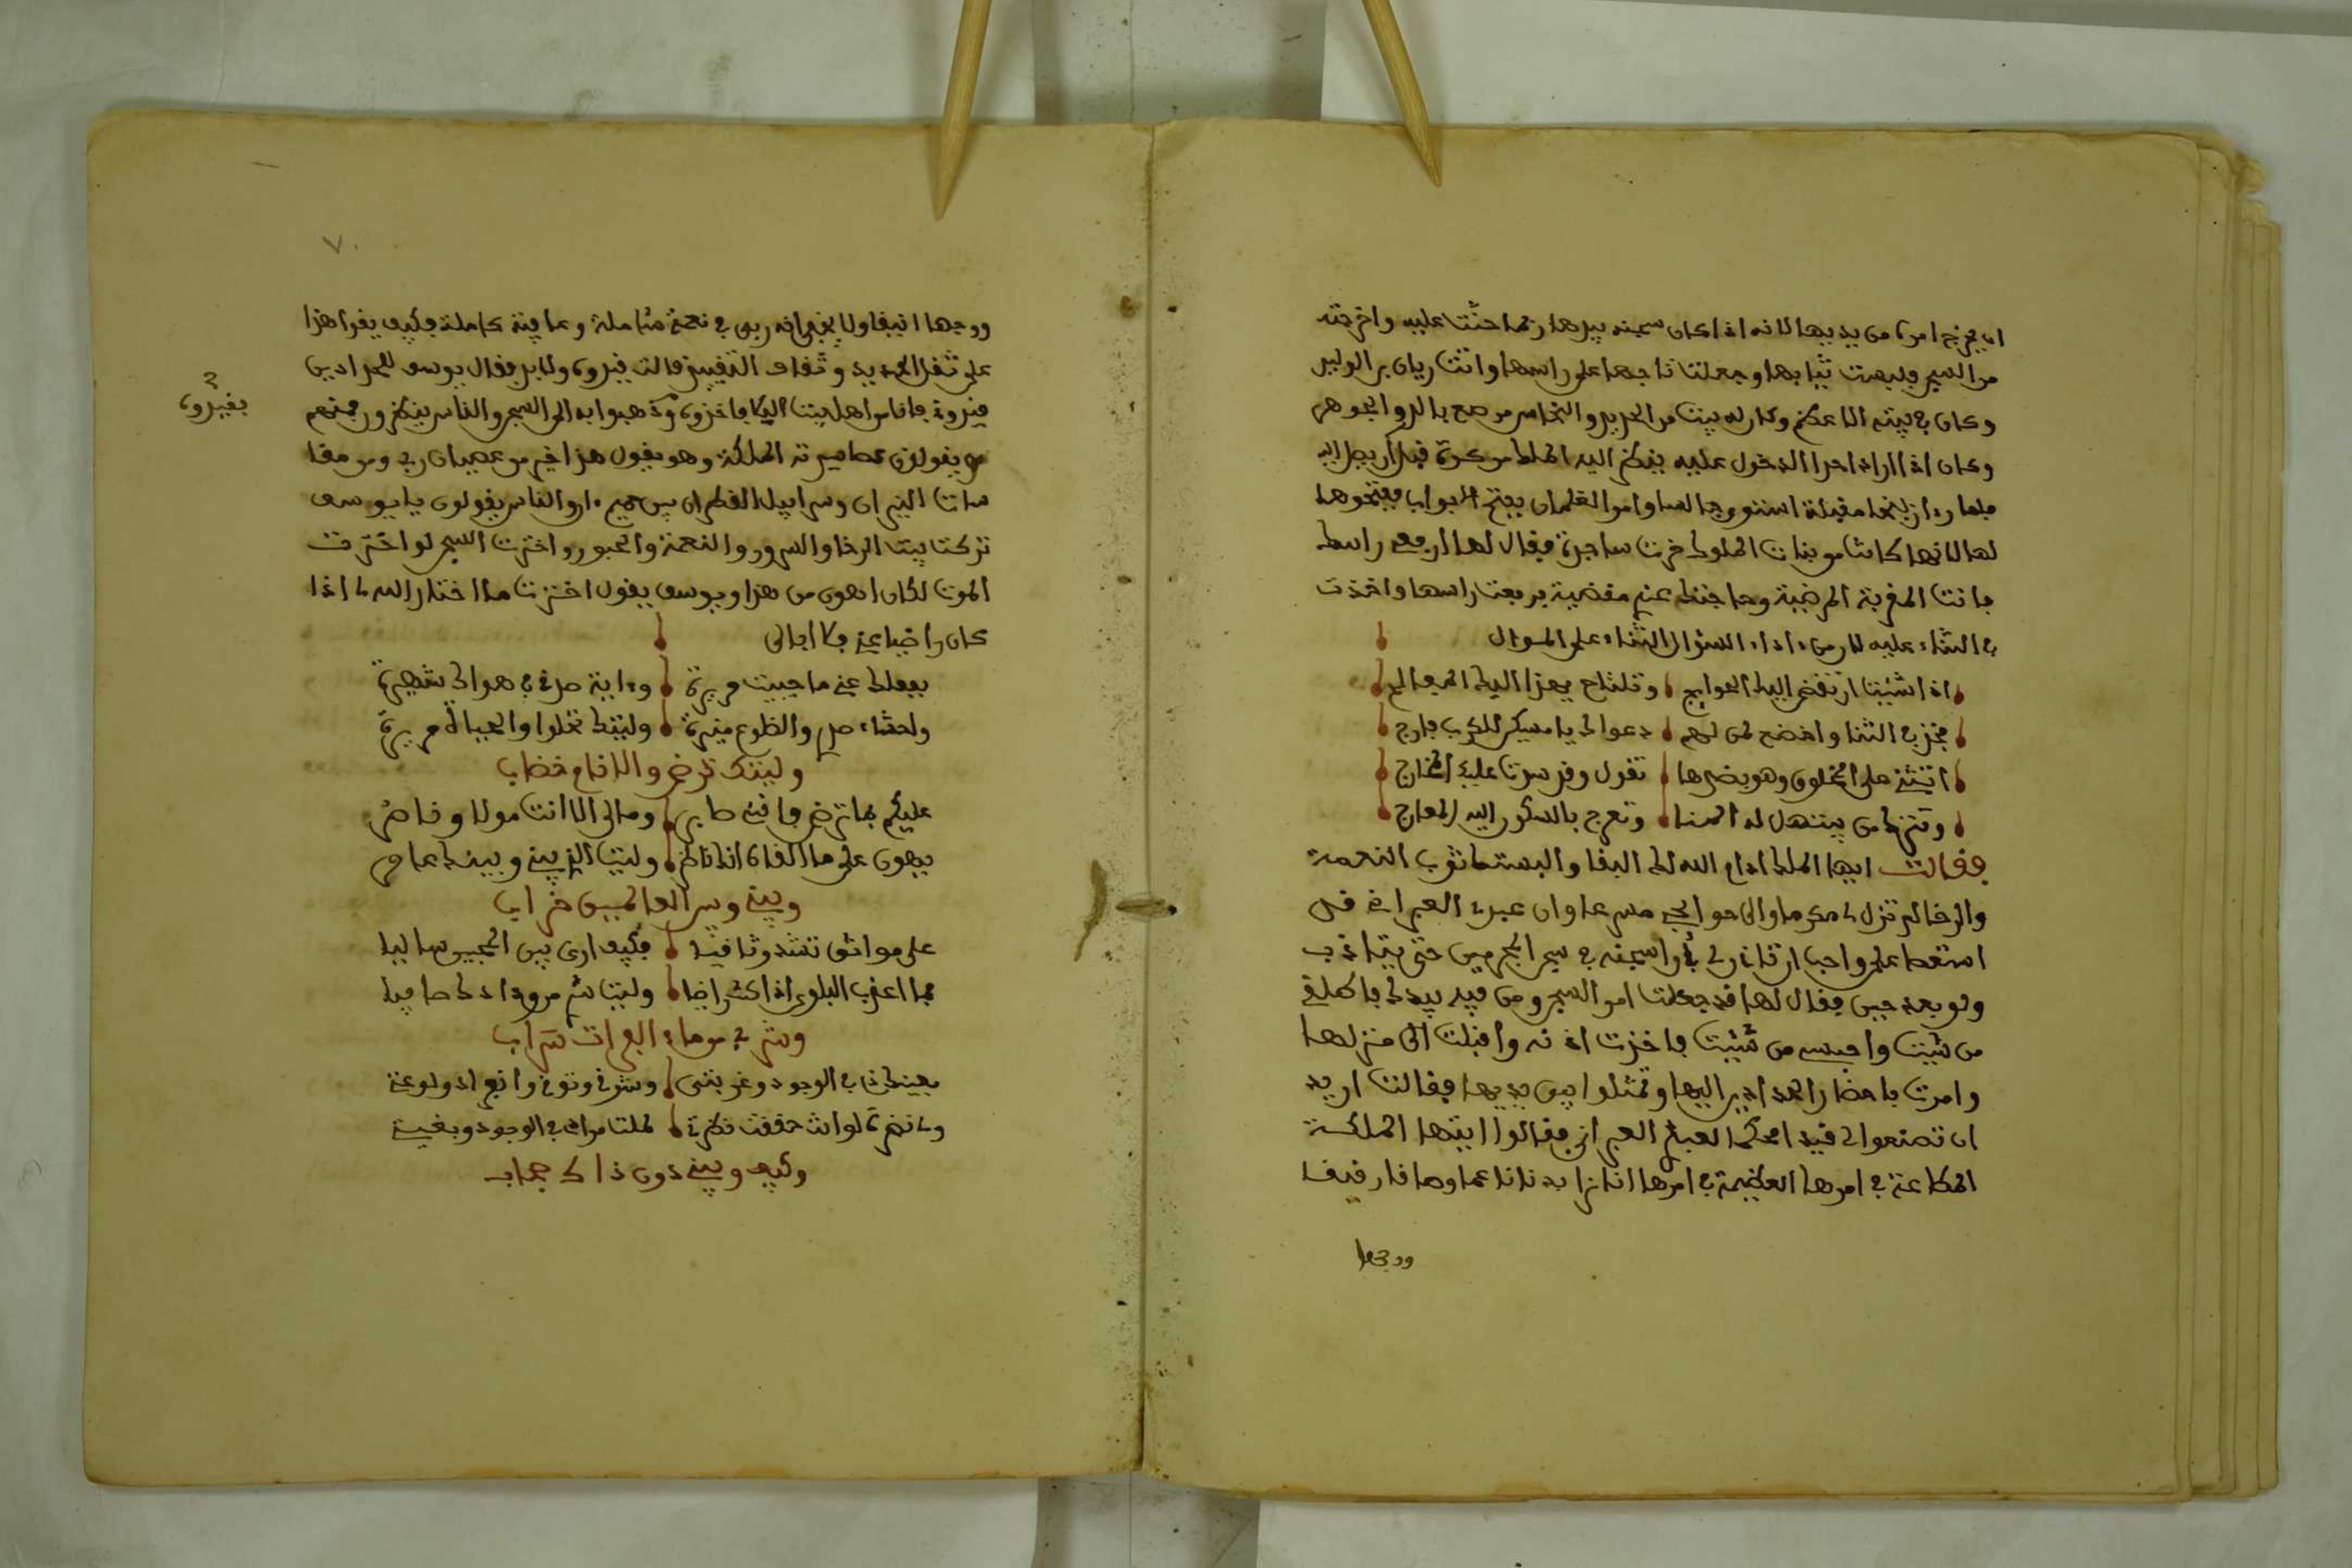 ان يخرج امره من يديها لانه اذا كان سجينه بيدها ربما حنت عليه واخرجته
من السجن فلبست ثيابها وجعلت تاجها على راسها واتت ريان بن الوليد
وكان في بيته الاعظم وكان له بيت من الحديد والنحاس مرصع بالدر والجوهر
وكان اذا اراد احد الدخول عليه ينظر اليه الملك من كوة قبل ان يصل اليه
فلما رءا زليخا مقبلة استوى جالسا وامر الغلمان بفتح الابواب ففتحوها
لها لانها كانت من بنات الملوك خرت ساجدة فقال لها ارفعي راسك
فانت المقربة المرضية وحاجتك عندي مقضية فرفعت راسها واخذت
في الثناء عليه لان من اداء السؤال الثناء على المسؤل
اذا شئت ان تقضى اليك الحوايج وتلتاح يعزا اليك المعالج
فخذ في الثنا واخضع لمن لهم دعوا لي يا مسكين للكرب فارج
اتثني على المخلوق وهو بضدها تقول وقد سدت عليك المخارج
وتترك من يستهل له الهنا وتعرج بالشكر اليه المعارج
فقالت ايها الملك ادام الله لك البقا والبسك اثوب النعمة
والرخا لم تزل لي مكرما والى حوائجي مسرعا وان عبدي العبراني قد
استعصا علي واحب ان تاذن لي في ان اسجنه في سجن المجرمين حتى يتاذب
ولو بعد حين فقال لها قد جعلت امر السجن ومن فيه بيدك فاطلقي
من شيت واحبسي من شيت فاخذت اذنه واقبلت الى منزلها
وامرت باحضار الحدادين اليها وتمثلوا بين يديها فقالت اريد
ان تصنعوا لي قيدا محكما لعبدي العبراني فقالوا ايتها الملكة
المطاعة في امرها العظيمة في امرها انا نرا بدنا ناعما وساقا رقيقا
ووجها
٧٠
ووجها انيقا ولا يخفى انه ربي في نعمة شاملة وعافية كاملة فكيف يقوا هذا
على ثقل الحديد وثقاف التقييد قالت قيدوه ولا بد فقال يوسف للحدادين
قيدوني فانا من اهل بيت البكا فاخذوه وذهبوا به الى السجن والناس ينظرون فمنهم
من يقول من عصا سيدته الملكة وهو يقول هذا خير من عصيان ربي ومن مقا
سات النيران وسرابيل القطران بين حميم ءان والناس يقولون يا يوسف
تركت بيت الرخا والسرور والنعمة والحبور واخترت السجن لو اخترت
الموت لكان اهون من هذا ويوسف يقول اخترت ما اختار الله لي اذا
كان راضيا عني فلا ابالي
بفعلك عني ما حييت مريرة وداية صدقي في هواك شهيرة
ولحشاء صلي والظلوع منيرة وليتك تحلوا والحياة مريرة
وليتك ترضى والانام غضاب
عليكم بما ترضى فاني صابر وما لي الا انت مولا وناصر
يهون علي ما القاه انك ناظر وليت الذي بيني وبينك عامر
وبيني وبين العالمين خراب
على مواثق تشد وثاقيا فكيف ارى بين المحبين ساليا
فما اعذب البلوى اذا كنت راضيا وليت شربي من ودادك صافيا
وشربي من ماء الفرات سراب
بعينك في الوجود وغربتي وشوقي وتوقي وانفرادي ولوعتي
ولي نضرة لو انت حققت نظرتي لملت مرادي في الوجود وبغيتي
وكيف وبيني دون ذاك حجاب